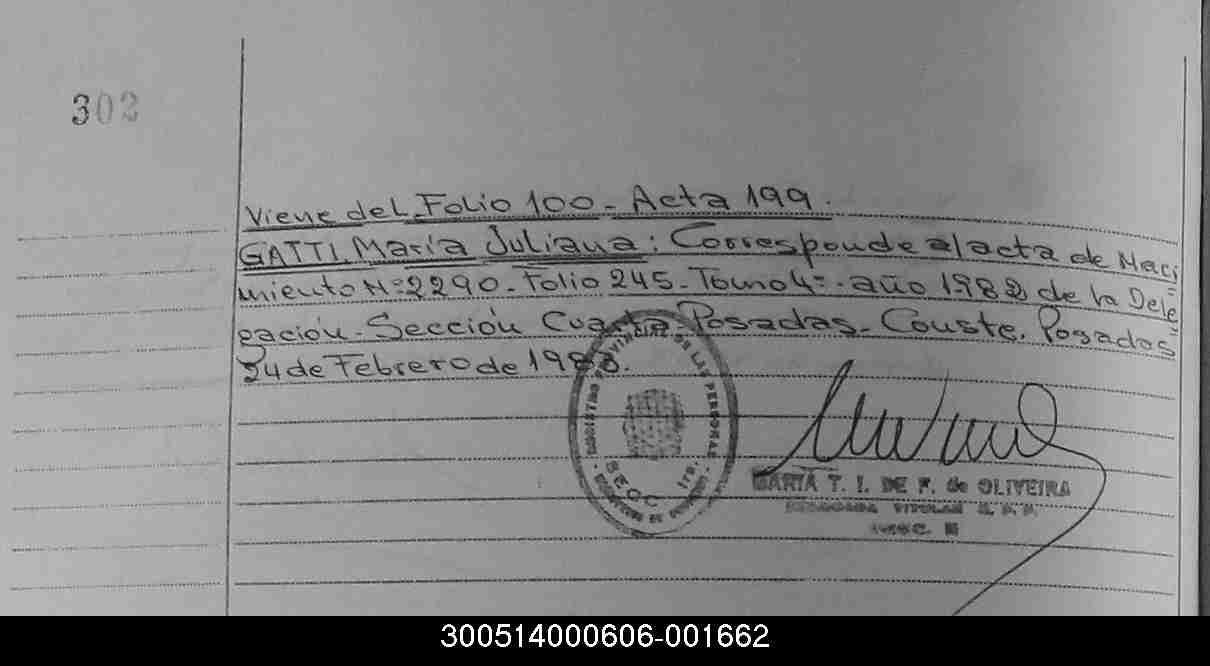 302
Viene del Folio 100 - Acta 199.
GATTI, María Juliana: Corresponde al acta de Naci
miento Nº 2290 - Folio 245 - Tomo 4º - año 1982 de la Dele
gación - Sección Cuarta - Posadas - Conste. Posadas
24 de Febrero de 1983.
REGISTRO PROVINCIAL DE LAS PERSONAS
SECC. 1ra.
MARIA T. I. DE F. de OLIVEIRA
TITULAR R. P. P.
300514000606-001662